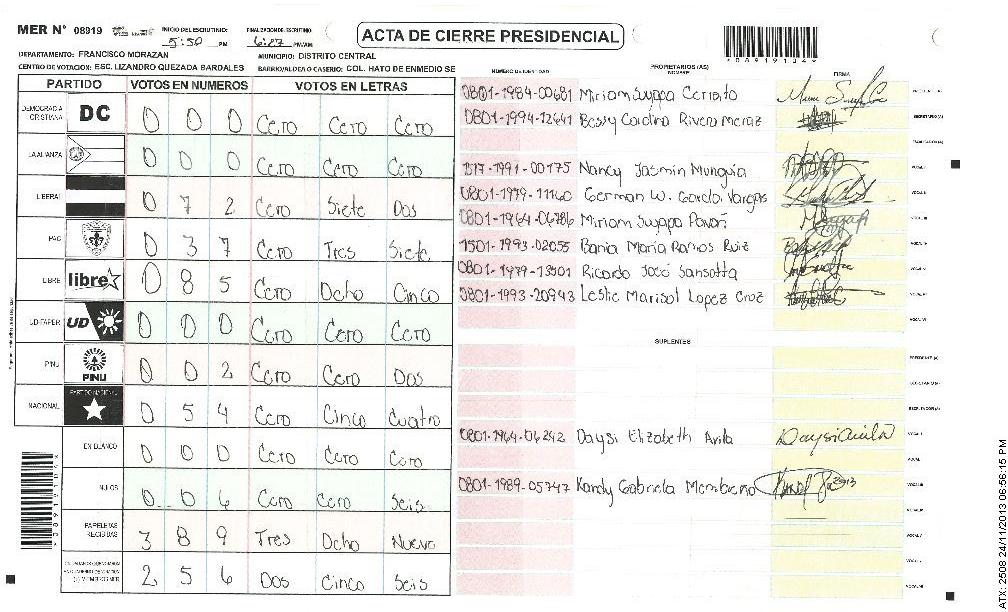 MER N° 08919
INICIO DEL ESCRUTINIO: 5:50 PM
FINALIZACION DEL ESCRUTINIO 6:27 PM/AM
ACTA DE CIERRE PRESIDENCIAL
DEPARTAMENTO: FRANCISCO MORAZAN
MUNICIPIO: DISTRITO CENTRAL
CENTRO DE VOTACION: ESC. LIZANDRO QUEZADA BARDALES
BARRIO/ALDEA O CASERIO: COL. HATO DE ENMEDIO SE
PARTIDO VOTOS EN NUMEROS VOTOS EN LETRAS
DEMOCRACIA CRISTIANA DC 0 0 0 Cero Cero Cero
LA ALIANZA 0 0 0 Cero Cero Cero
LIBERAL 0 7 2 Cero Siete Dos
PAC 0 3 7 Cero Tres Siete
LIBRE libre 0 8 5 Cero Ocho Cinco
UD-FAPER UD 0 0 0 Cero Cero Cero
PINU PINU 0 0 2 Cero Cero Dos
NACIONAL PARTIDO NACIONAL 0 5 4 Cero Cinco Cuatro
EN BLANCO 0 0 0 Cero Cero Cero
NULOS 0 0 6 Cero Cero Seis
PAPELETAS RECIBIDAS 3 8 9 Tres Ocho Nueve
2 5 6 Dos Cinco Seis
NUMERO DE IDENTIDAD PROPIETARIOS (AS) NOMBRE FIRMA
0801-1984-00681 Miriam Suyapa Cerrato
0801-1994-12641 Bessy Carolina Rivera Meraz SECRETARIO (A)
ESCRUTADOR (A)
1517-1991-00175 Nancy Jasmin Munguia VOCAL I
0801-1979-11160 German W. Garcia Vargas VOCAL II
0801-1964-06786 Miriam Suyapa Pavon VOCAL III
1501-1993-02055 Bania Maria Ramos Ruiz VOCAL IV
0801-1979-13501 Ricardo Jose Sansotta VOCAL V
0801-1993-20943 Leslie Marisol Lopez Cruz
SUPLENTES
PRESIDENTE (A)
SECRETARIO (A)
ESCRUTADOR (A)
0801-1964-06242 Daysi Elizabeth Avila Daysi Avila VOCAL I
VOCAL
0801-1989-05747 Kandy Gabriela Membreño
*089191304*
ATX: 2508 24/11/2013 06:56:15 PM